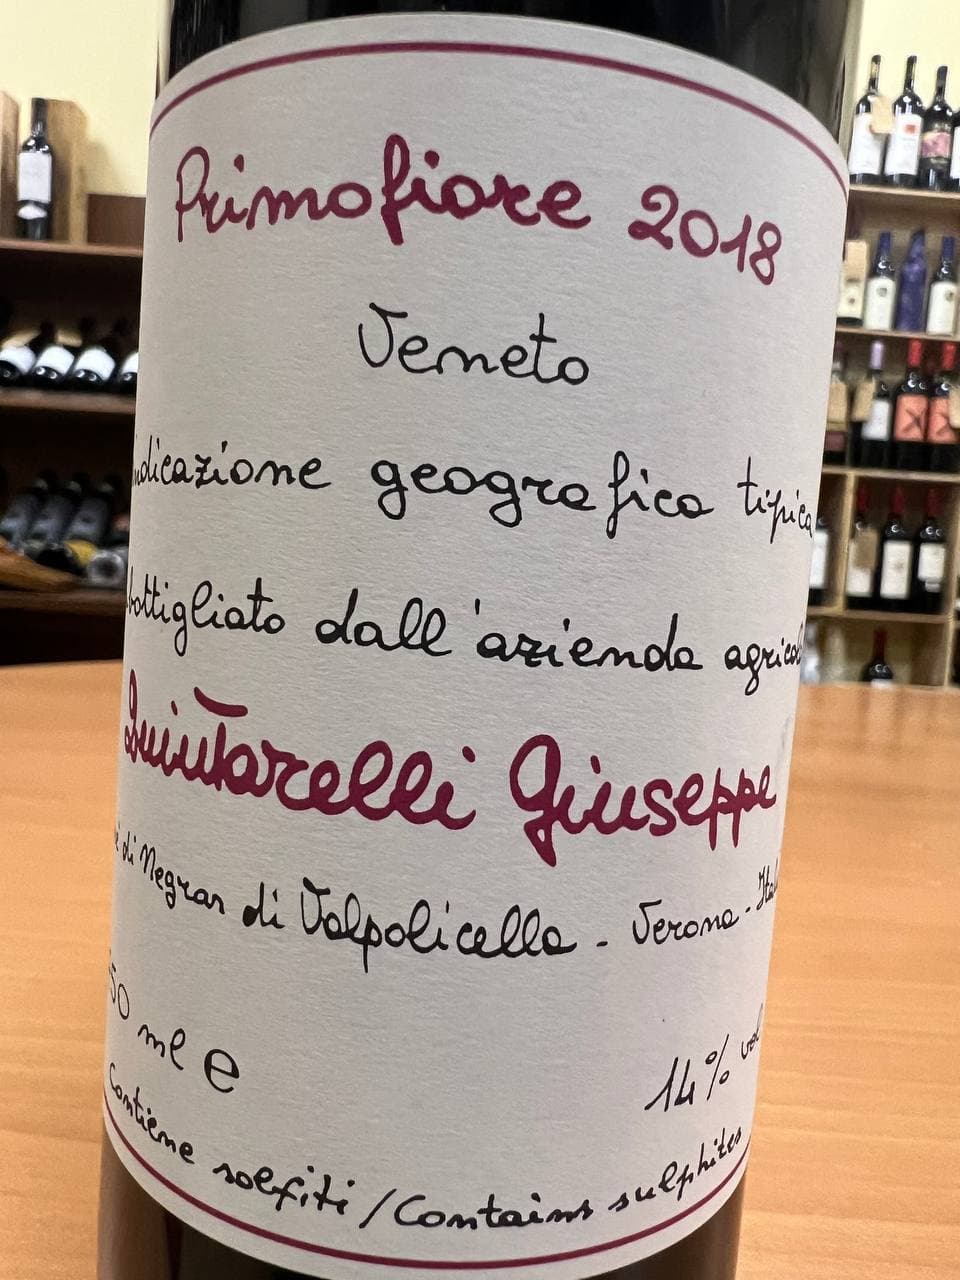 Primofiore 2018
Veneto
indicazione geografica tipica
bottigliato dall'azienda agricol
Quintarelli Giuseppe
di Negrar di Valpolicella - Verona - Ital
50 ml e
14% vol
Contiene solfiti / Contains sulphites